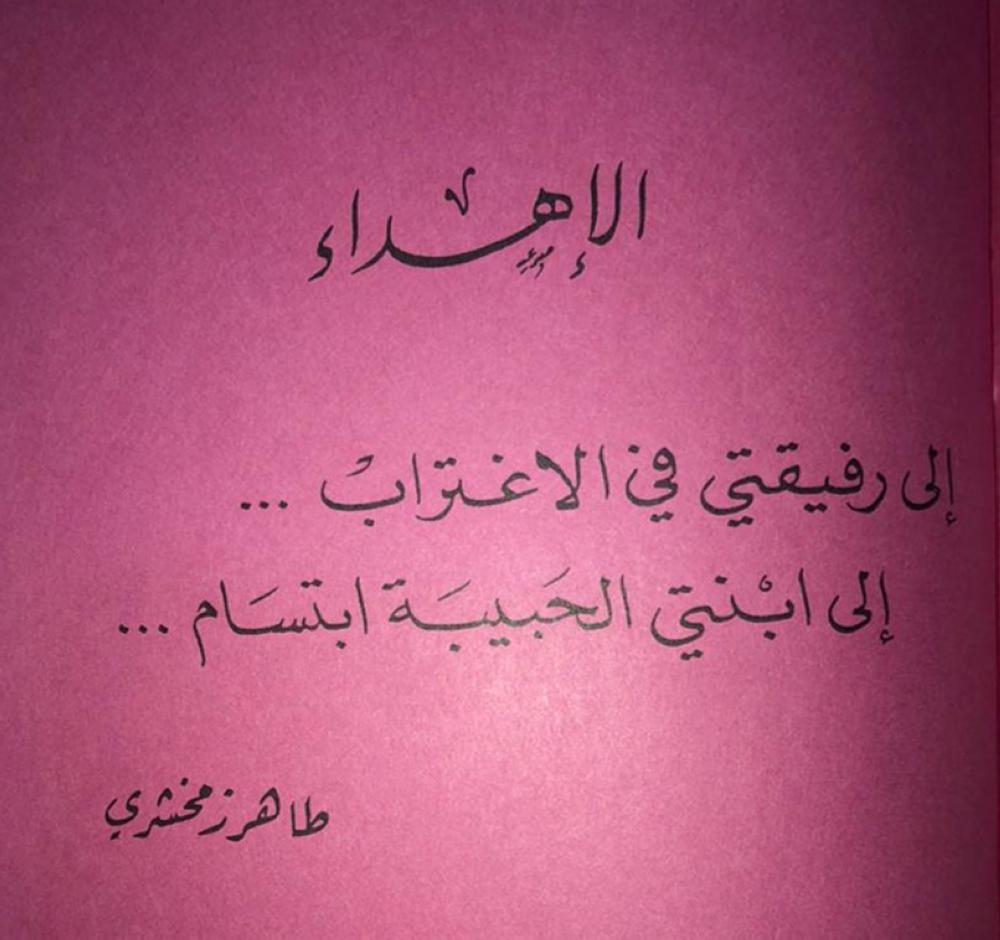 الإهداء
إلى رفيقتي في الاغترابْ ...
إلى ابْنتي الحَبيبَة ابتسَام ...
طاهر زمخشري